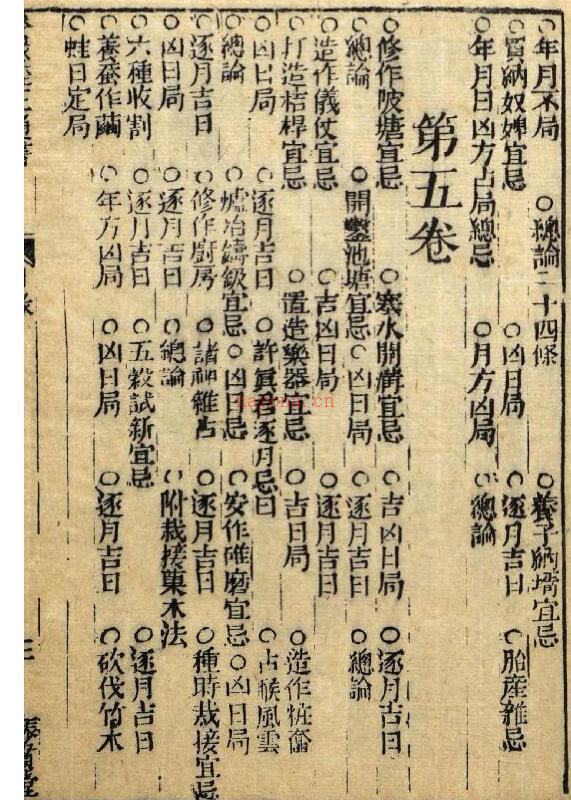 ○年月不局 ○總論二十四條 ○養子納壻宜忌
○買納奴婢宜忌 ○凶日局 ○逐月吉日 ○胎產雜忌
○年月日凶方占局總忌 ○月方凶局 ○總論
第五卷
○修作陂塘宜忌 ○塞水開溝宜忌 ○吉凶日局 ○逐月吉日
○總論 ○開鑿池塘宜忌 ○凶日局 ○逐月吉日 ○總論
○造作儀仗宜忌 ○吉凶日局 ○逐月吉日
○打造桔槔宜忌 ○置造樂器宜忌 ○吉日局 ○造作粧奩
○凶日局 ○逐月吉日 ○許眞君逐月忌日 ○占候風雲
○總論 ○爐冶鑄鈒宜忌 ○凶日忌 ○安作碓磨宜忌 ○凶日局
○逐月吉日 ○修作廚房 ○諸神雜占 ○逐月吉日 ○種時栽接宜忌
○凶日局 ○逐月吉日 ○總論 附栽接菓木法
○六種收割 ○逐月吉日 ○五穀試新宜忌 ○逐月吉日
○養蚕作繭 ○年方凶局 ○凶日局 ○逐月吉日 ○砍伐竹木
○蛙日定局